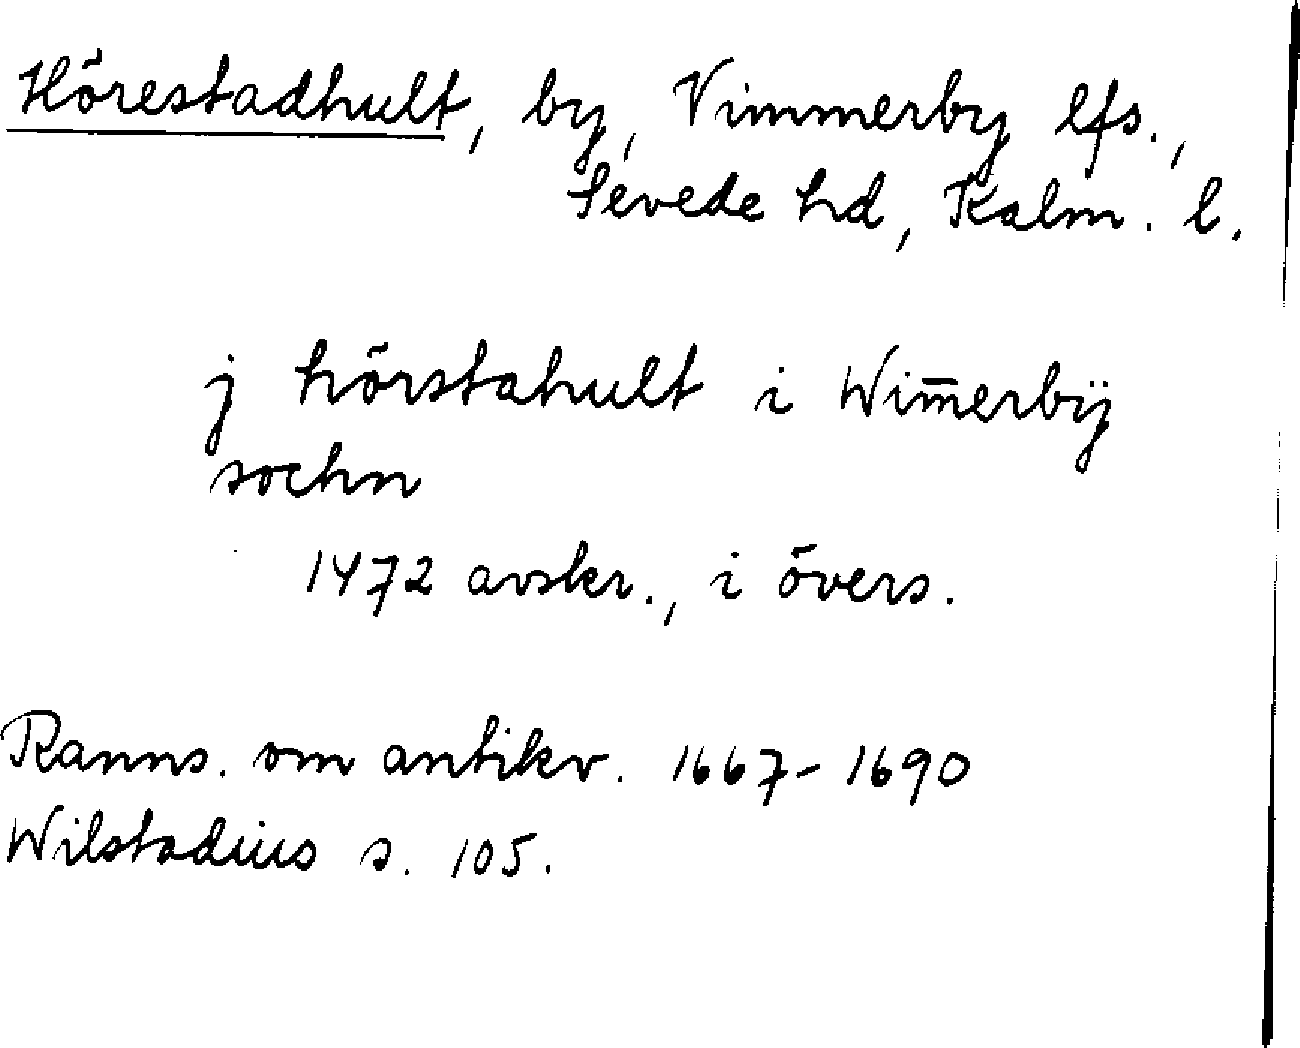 Hörestadhult, by, Vimmerby lfs.,
Sevede hd, Kalm. l.
j hörstahult i Wim̅erbÿ
sochn
1472 avskr., i övers.
Ranns. om antikv. 1667-1690
Wilstadius s. 105.